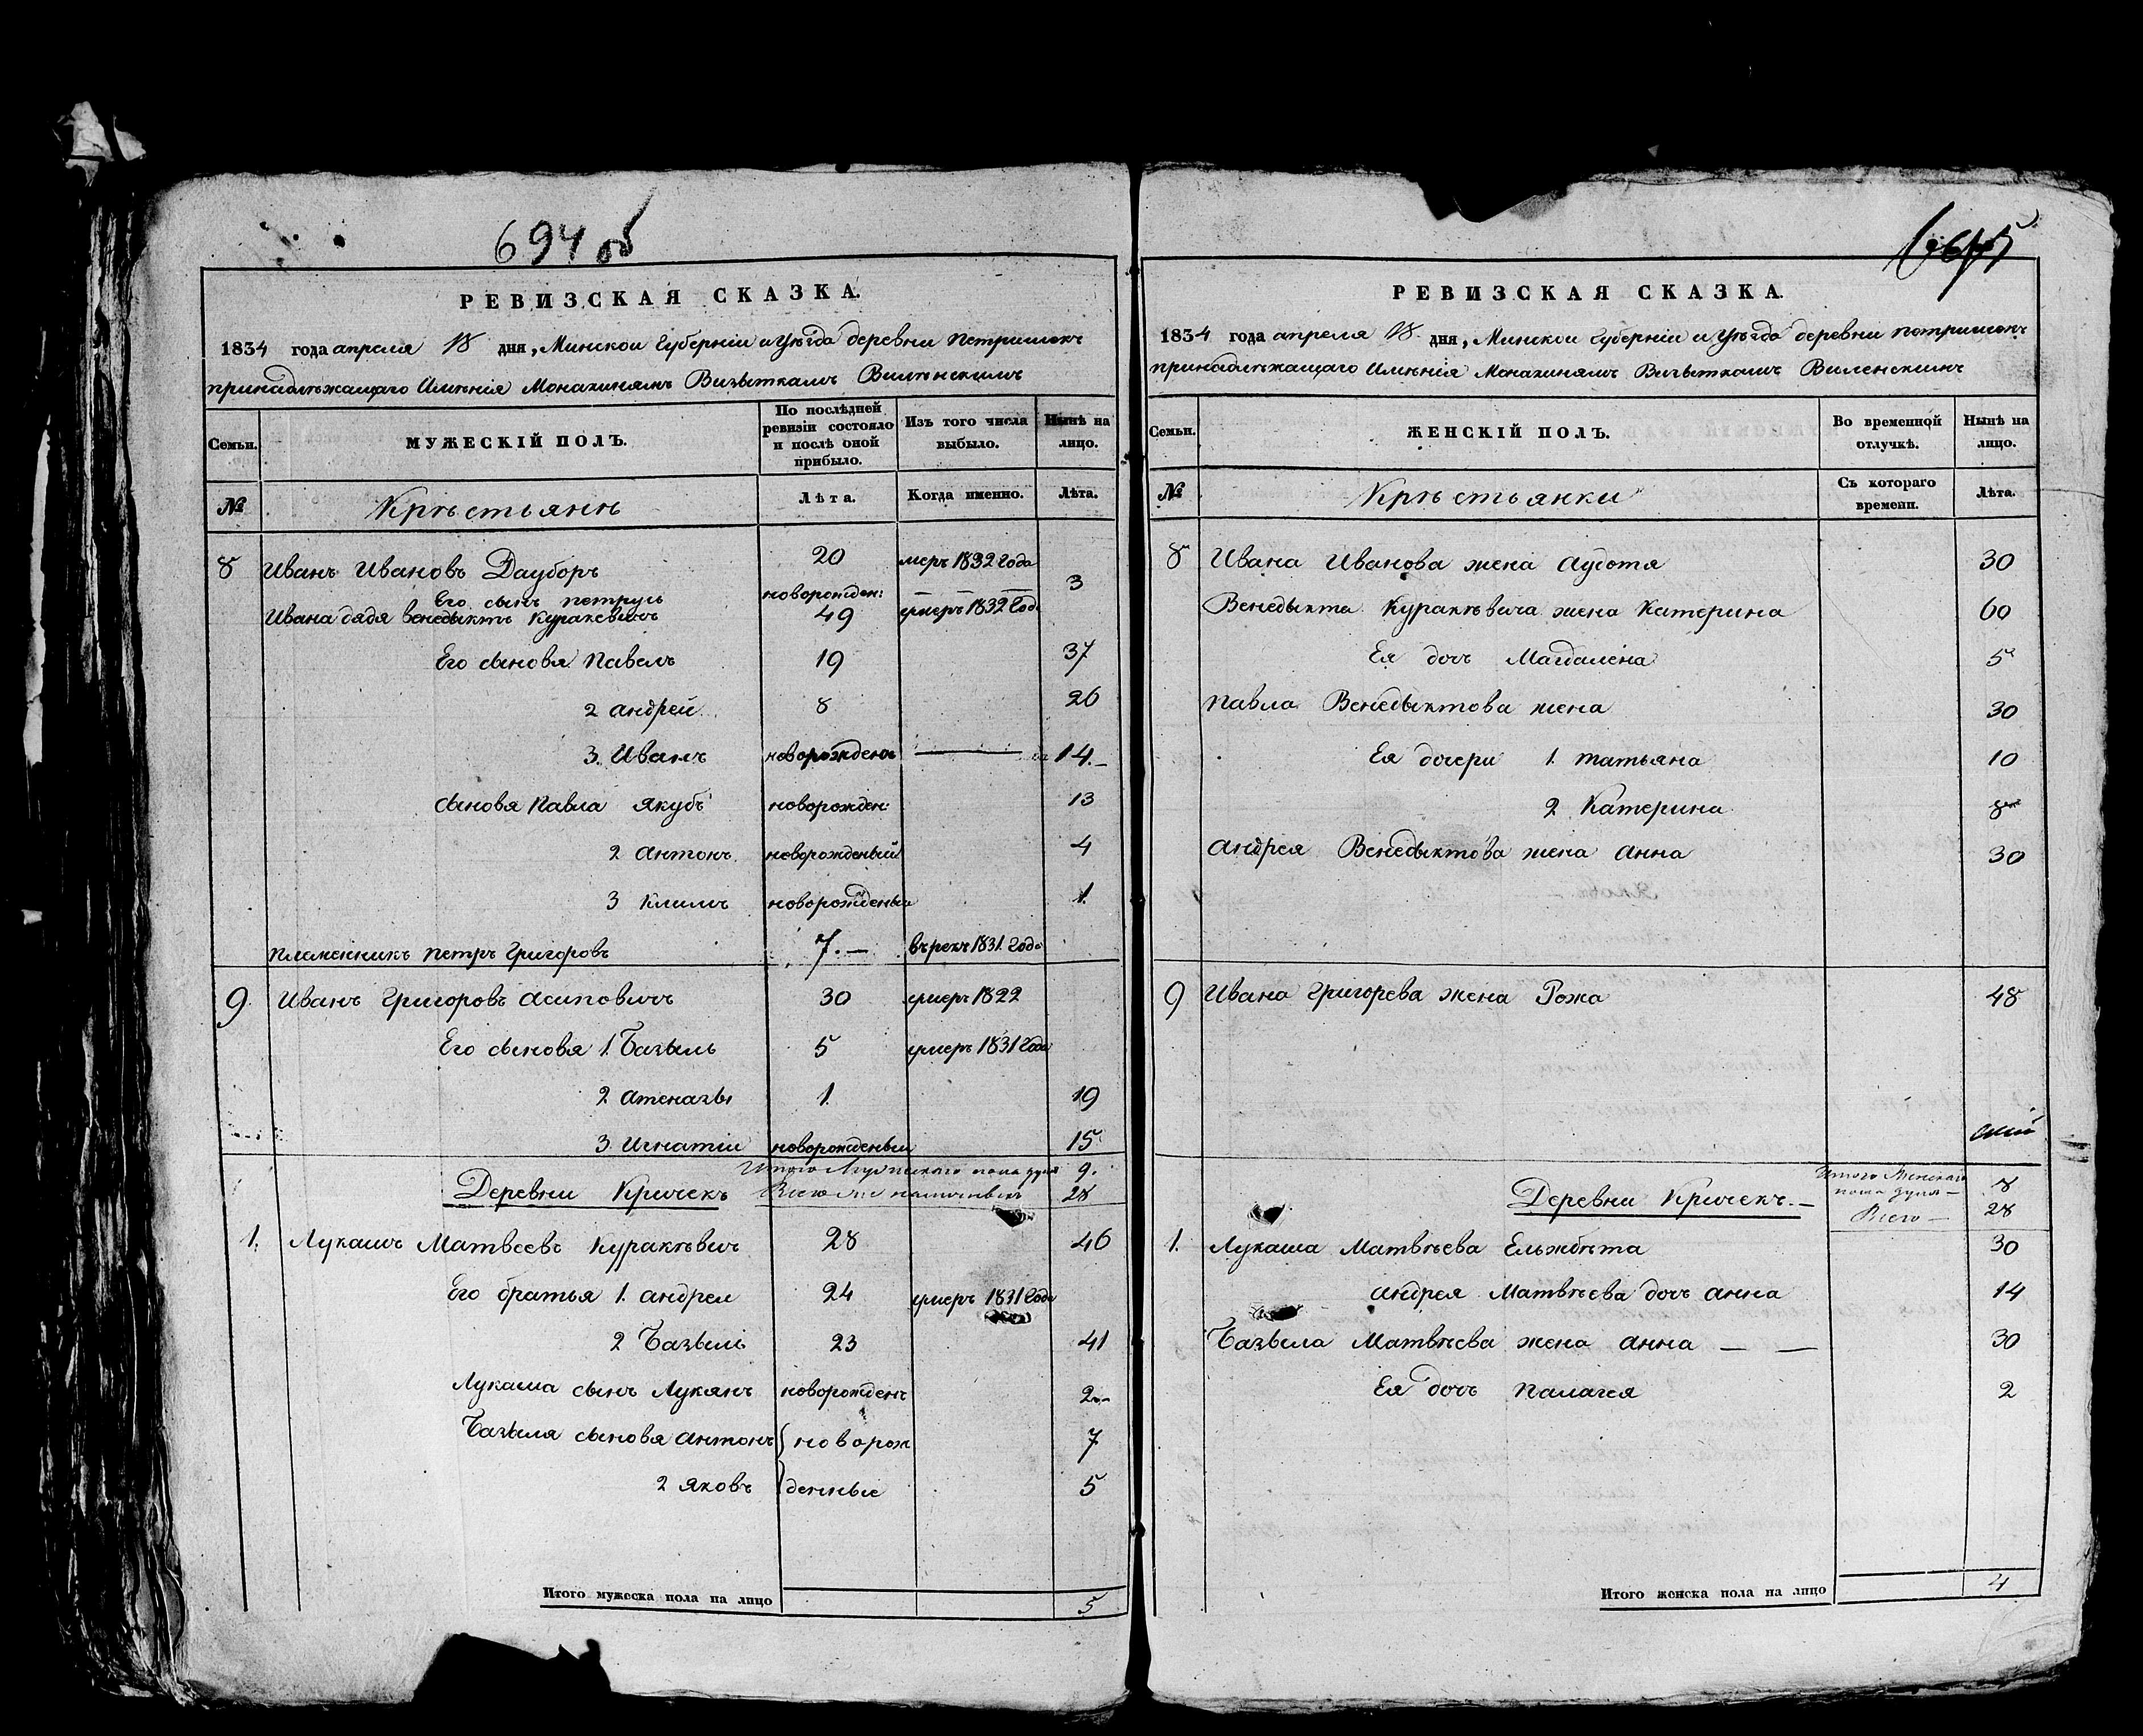 694 об
РЕВИЗСКАЯ СКАЗКА.
1834 года апреля 18 дня, Минской Губерніи и Уѣзда деревни Петришекъ
принадлѣжащаго Имѣнія Монахинямъ Визыткамъ Виленскимъ
Семьи.
МУЖЕСКІЙ ПОЛЪ.
По послѣдней ревизіи состояло и послѣ оной прибыло.
Изъ того числа выбыло.
Нынѣ на лицо.
№
Крѣстьянѣ
Лѣта.
Когда именно.
Лѣта.
8 Иванъ Ивановъ Дауборъ 20 1832 Года
Его сынъ Петрусь новорожден: — — 3
Ивана дядя Венедыктъ Куракевичъ 49 умеръ 1832 Год
Его сыновя Павелъ 19 37
2 Андрей 8 26
3. Иванъ новорожденъ — 14.–
сыновя Павла Якубъ новорожден: 13
2 Антонъ новорожденый 4
3 Климъ новорожденый 1.
Племенникъ Петръ Григоровъ 7.– 1831. Года
9. Иванъ Григоровъ Асиповичъ 30 умеръ 1822
Его сыновя 1. Базыль 5 умеръ 1831 Года
2 Атеназы 1. 19
3. Игнатій новорожденый 15
Итого Мужескаго пола душъ 9.
Деревни Кричекъ 28
1. Лукашъ Матвеевъ Куракѣвич 28 46
Его братья 1. Андреи 24 умеръ 1831 Года
2 Базыль 23 41
Лукаша сынъ Лукянъ новорожденъ 2.–
Базыля сыновя Антонъ { новорож 7
2 Яковъ { денные 5
Итого мужеска пола на лицо 5
РЕВИЗСКАЯ СКАЗКА.
1834 года апреля 18 дня, Минской Губерніи и Уѣзда деревни Петришекъ
принадлѣжащаго Имѣнія Монахинямъ Визыткамъ Виленскимъ
Семьи.
ЖЕНСКІЙ ПОЛЪ.
Во временной отлучкѣ.
Нынѣ на лицо.
№
Крѣстьянки
Съ котораго времени.
Лѣта.
8 Ивана Иванова жена Аудотя 30
Венедыкта Куракѣвича жена Катерина 60
Ея доч Магдалена 5
Павла Венедыктова жена 30
Ея дочери 1. Татьяна 10
2 Катерина 8
Андрея Венедыктова жена Анна 30
9 Ивана Григорева жена Рожа 48
Итого Женскаго пола душъ — 8
Деревни Кричекъ.— Всего — 28
1. Лукаша Матвѣева Ельжбѣта 30
Андрея Матвѣева доч Анна 14
Базыла Матвѣева жена Анна — — 30
Ея доч Палагея 2
Итого женска пола на лицо 4